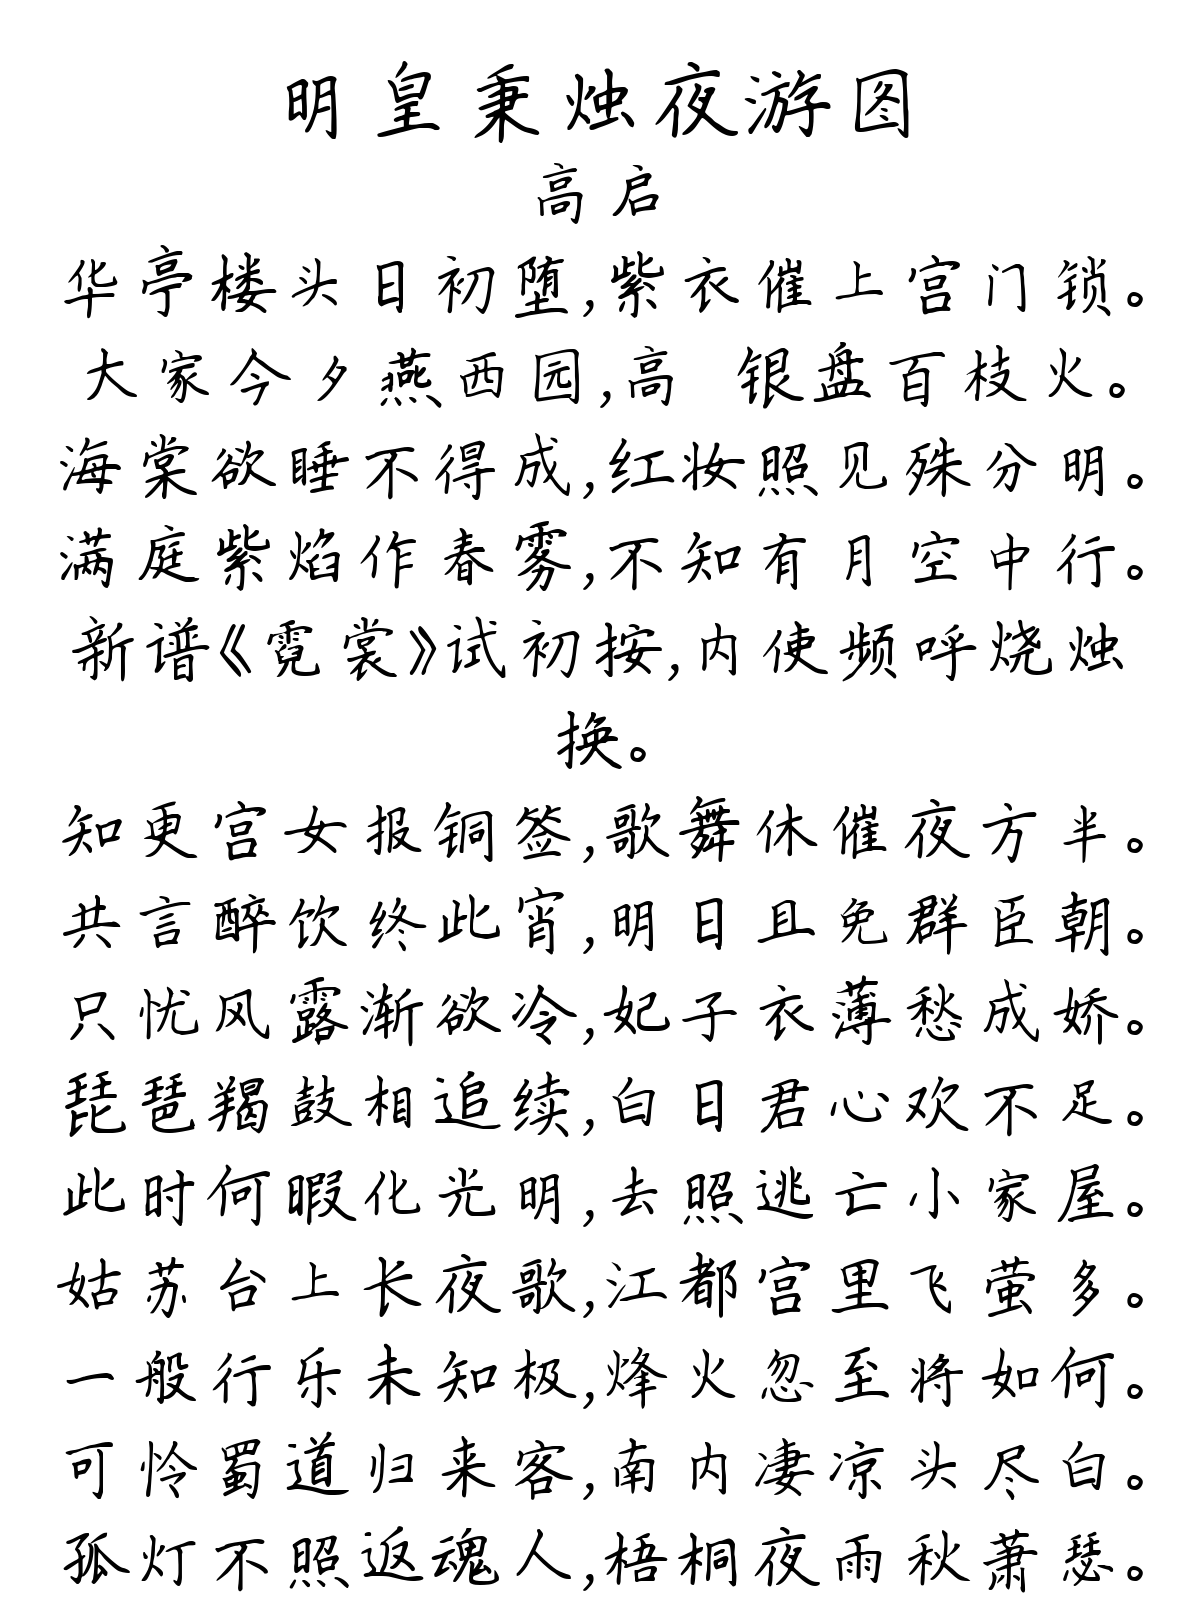 明皇秉烛夜游图
高启
华亭楼头日初堕,紫衣催上宫门锁。
大家今夕燕西园,高 银盘百枝火。
海棠欲睡不得成,红妆照见殊分明。
满庭紫焰作春雾,不知有月空中行。
新谱《霓裳》试初按,内使频呼烧烛
换。
知更宫女报铜签,歌舞休催夜方半。
共言醉饮终此宵,明日且免群臣朝。
只忧风露渐欲冷,妃子衣薄愁成娇。
琵琶羯鼓相追续,白日君心欢不足。
此时何暇化光明,去照逃亡小家屋。
姑苏台上长夜歌,江都宫里飞萤多。
一般行乐未知极,烽火忽至将如何。
可怜蜀道归来客,南内凄凉头尽白。
孤灯不照返魂人,梧桐夜雨秋萧瑟。